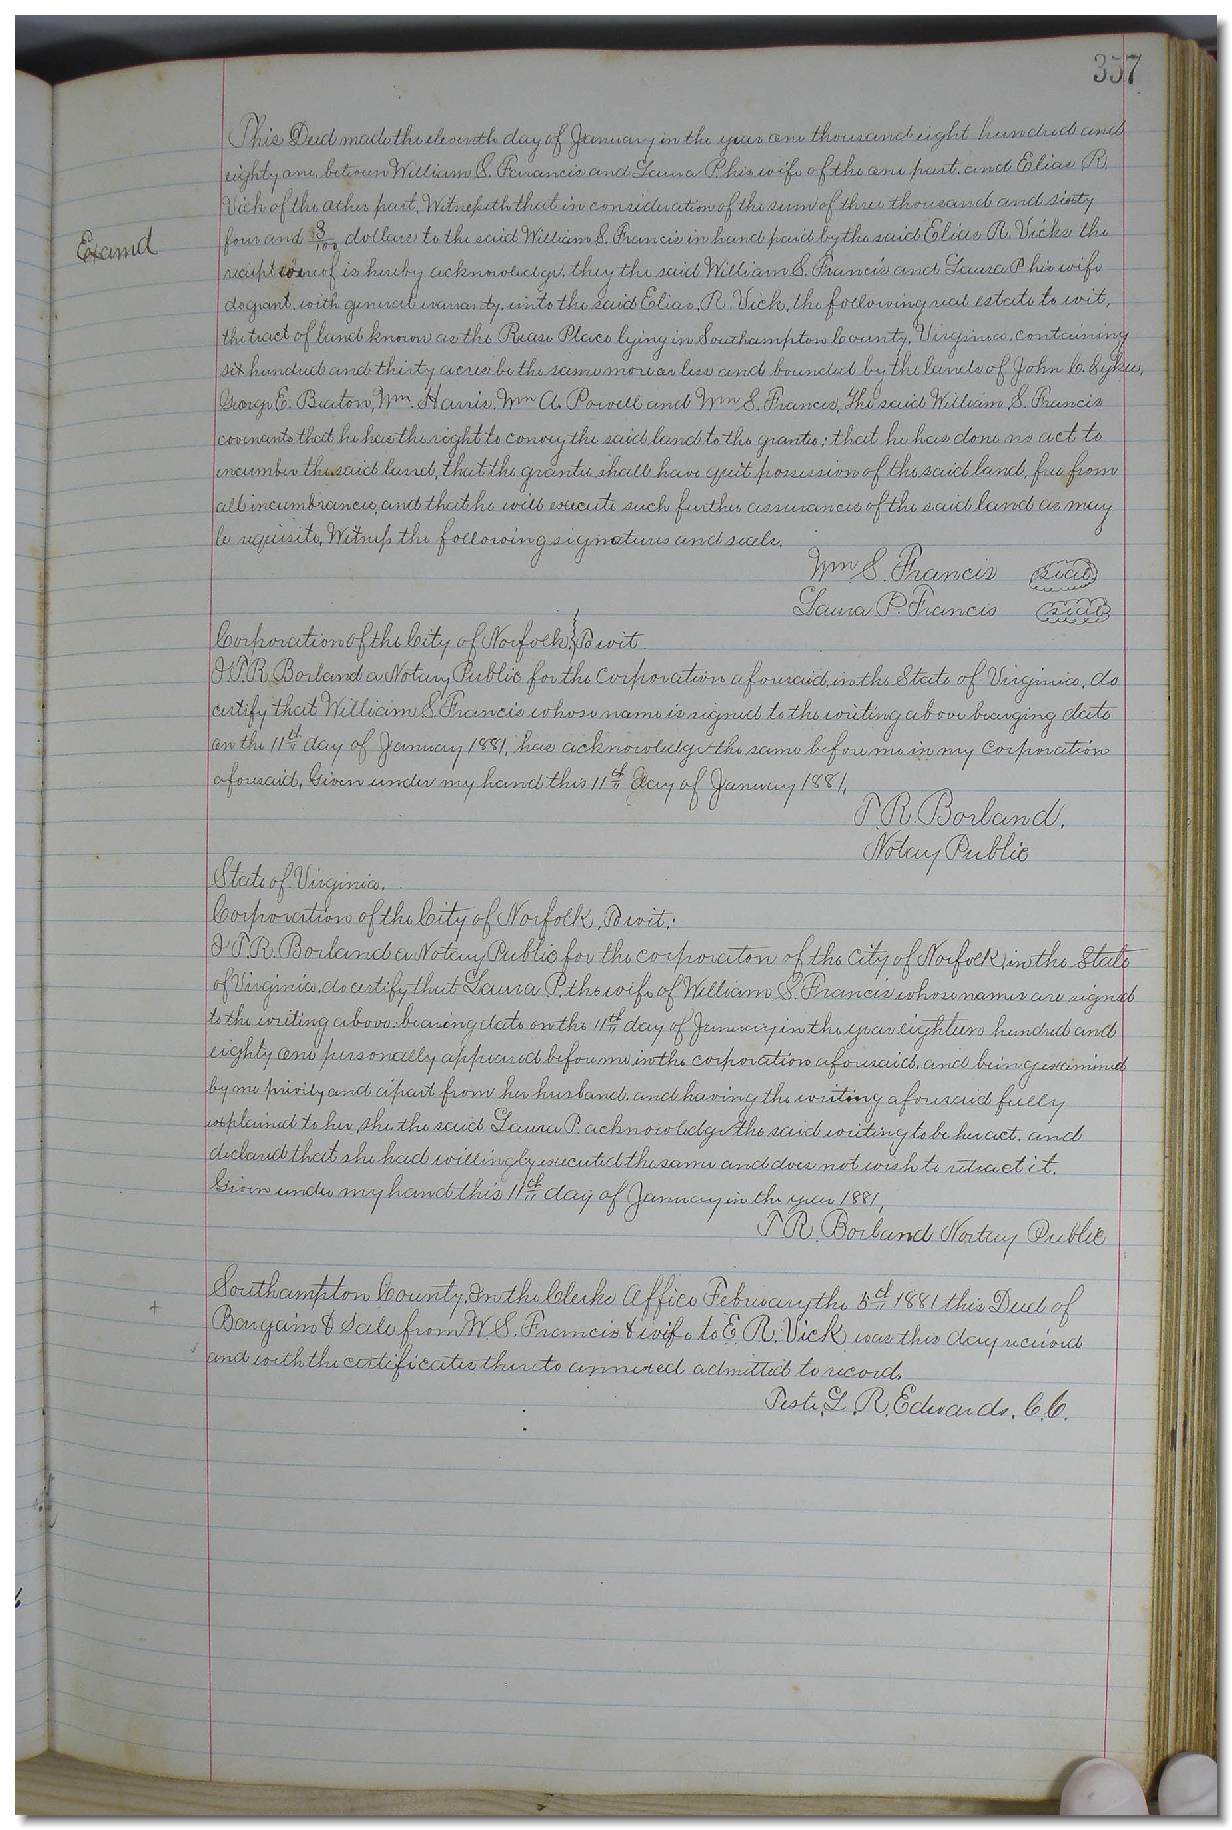 357
This Deed made the eleventh day of January in the year one thousand eight hundred and
eighty one, between William S. Francis and Laura P. his wife of the one part, and Elias R.
Vick of the other part, Witnesseth that in consideration of the sum of three thousand and sixty
Examd
four and 8/100 dollars to the said William S. Francis in hand paid by the said Elias R. Vicks the
receipt whereof is hereby acknowledge, they the said William S. Francis and Laura P his wife
do grant, with general warranty, unto the said Elias, R. Vick, the following real estate to wit,
the tract of land known as the Rease Place lying in Southampton County, Virginia, containing
six hundred and thirty acres be the same more or less and bounded by the lands of John C. Sykes,
George E. Beaton, Wm. Harris, Wm A. Powell and Wm S. Francis, The said William, S. Francis
covenants that he has the right to convey the said land to the grantee; that he has done no act to
incumber the said land, that the grantee shall have quit possession of the said land, free from
all incumbrances, and that he will execute such further assurances of the said land as may
be requisite, Witness the following signatures and seals.
Wm S. Francis seal
Laura P. Francis seal
Corporation of the City of Norfolk, To wit
I T.R. Borland a Notary Public for the corporation aforesaid, in the State of Virginia, do
certify that William S. Francis whose name is signed to the writing above bearging date
on the 11th day of January 1881, has acknowledge the same before me in my corporation
aforesaid, Given under my hand this 11th day of January 1881,
T. R. Borland,
Notay Public
State of Virginia.
Corporation of the City of Norfolk, To wit;
I T.R. Borland a Notary Public for the corporaton of the city of Norfolk, in the State
of Virginia, do certify that Laura P. the wife of William S. Francis whose names are signed
to the writing above bearing date on the 11th day of January in the year eighteen hundred and
eighty one personally appeared before me in the corporation aforesaid, and being examined
by me privily and apart from her husband, and having the writing aforesaid fully
explained to her, she the said Laura P. acknowledge the said writing to be her act, and
declared that she had willingly executed the same and does not wish to retract it.
Given under my hand this 11th day of January in the year 1881,
T R. Borland Nortay Public
Southampton County, In the Clerks Office February the 5th 1881 this Deed of
Bargain & Sale from W. S. Francis & wife to E. R. Vick was this day received
and with the certificates thereto annexed admitted to record.
Teste, L. R. Edwards, C.C.